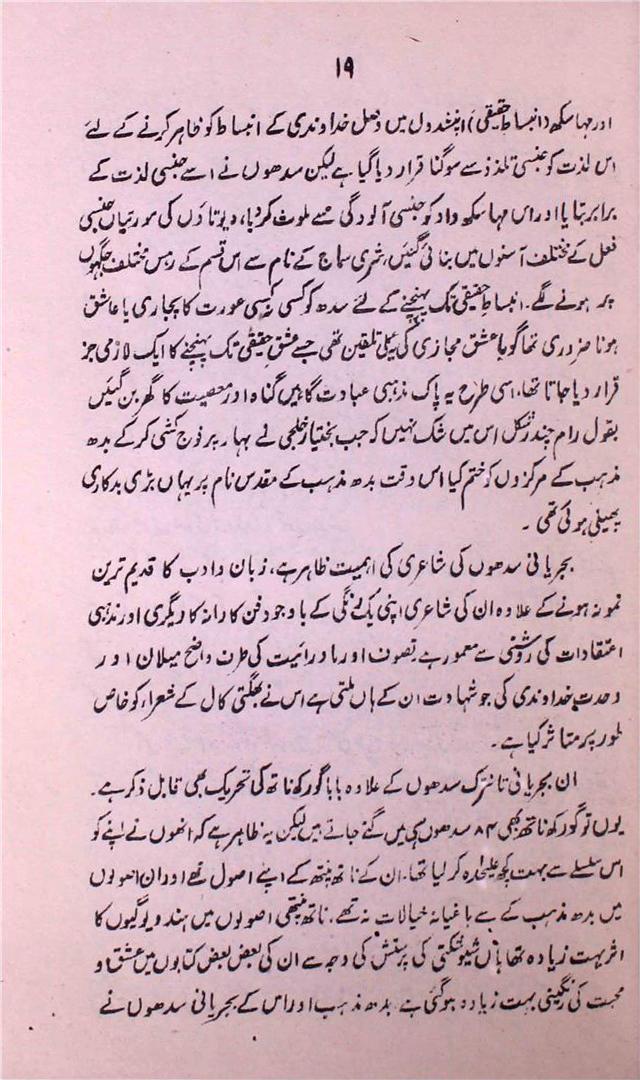 ۱۹
اور مہا سکھ (انبساطِ حقیقی) اپنشدوں میں وصل خداوندی کے انبساط کو ظاہر کرنے کے لئے
اس لذت کو جنسی تلذذ سے سوگنا قرار دیا گیا ہے لیکن سدھوں نے اسے جنسی لذت کے
برابر بنایا اور اس مہا سکھ واد کو جنسی آلودگی سے ملوث کر دیا، دیوتاؤں کی مورتیاں جنسی
فعل کے مختلف آسنوں میں بنائی گئیں، شری سماج کے نام سے اس قسم کے رہس مختلف جگہوں
پر ہونے لگے۔ انبساطِ حقیقی تک پہنچنے کے لئے سدھ کو کسی نہ کسی عورت کا پجاری یا عاشق
ہونا ضروری تھا گویا عشق مجازی کی پہلی تلقین تھی جسے عشق حقیقی تک پہنچنے کا ایک لازمی جز
قرار دیا جاتا تھا، اسی طرح یہ پاک مذہبی عبادت گاہیں گناہ اور معصیت کا گھر بن گئیں
بقول رام چندر شکل اس میں شک نہیں کہ جب بختیار خلجی نے بہار پر فوج کشی کر کے بدھ
مذہب کے مرکزوں کو ختم کیا اس وقت بدھ مذہب کے مقدس نام پر یہاں بڑی بدکاری
پھیلی ہوئی تھی۔
بجریانی سدھوں کی شاعری کی اہمیت ظاہر ہے، زبان و ادب کا قدیم ترین
نمونہ ہونے کے علاوہ ان کی شاعری اپنی یک رنگی کے باوجود فن کارانہ کاریگری اور مذہبی
اعتقادات کی روشنی سے معمور ہے۔ تصوف اور ماورائیت کی طرف واضح میلان اور
وحدتِ خداوندی کی جو شہادت ان کے ہاں ملتی ہے اس نے بھگتی کال کے شعراء کو خاص
طور پر متاثر کیا ہے۔
ان بجریانی تانترک سدھوں کے علاوہ بابا گورکھ ناتھ کی تحریک بھی قابل ذکر ہے۔
یوں تو گورکھ ناتھ بھی ۸۴ سدھوں ہی میں گنے جاتے ہیں لیکن یہ ظاہر ہے کہ انھوں نے اپنے کو
اس سلسلے سے بہت کچھ علیحدہ کر لیا تھا۔ ان کے ناتھ پنتھ کے اپنے اصول تھے اور ان اصولوں
میں بدھ مذہب کے سے باغیانہ خیالات نہ تھے، ناتھ پنتھی اصولوں میں ہندو یوگیوں کا
اثر بہت زیادہ تھا ہاں شیو شکتی کی پرستش کی وجہ سے ان کی بعض بعض کتابوں میں عشق و
محبت کی رنگینی بہت زیادہ ہو گئی ہے۔ بدھ مذہب اور اس کے بجریانی سدھوں نے